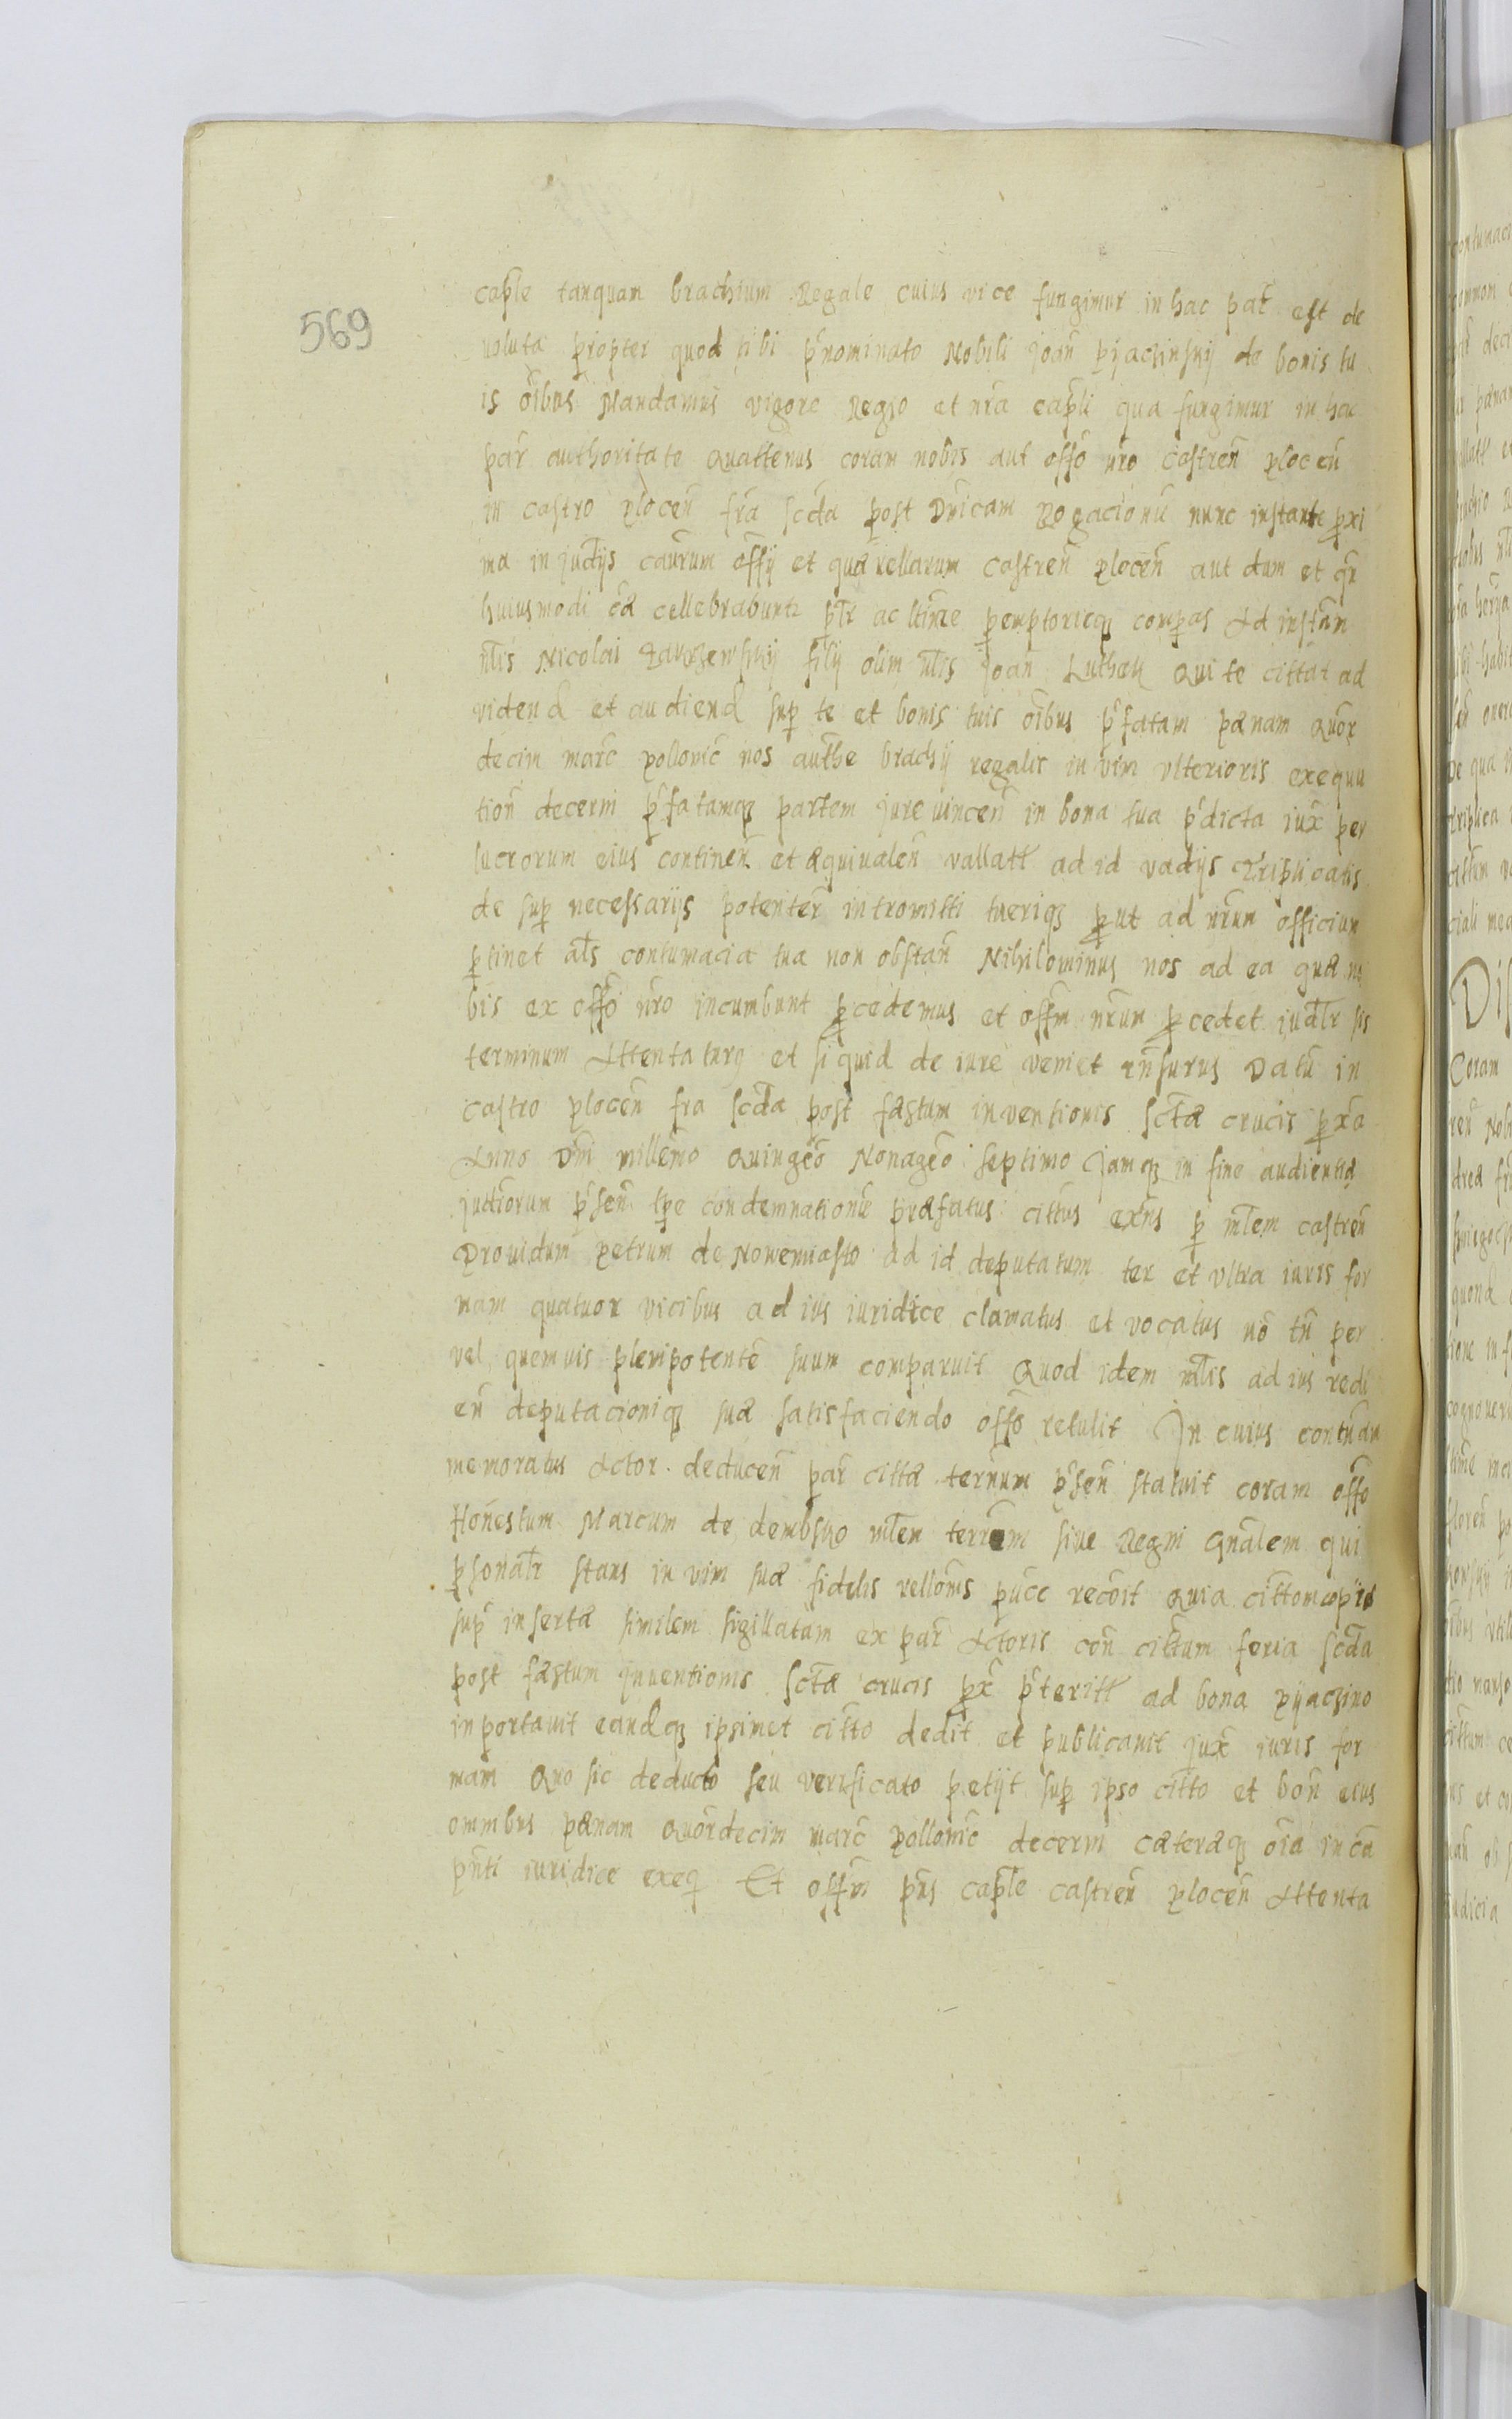 569
caple tanquam brachium Regale cuius vice fungimur in hac pãt est de
uoluta propter quod tibi p̃nominato Nobili Joañ pijaczinskij de bonis tu
is oĩbus Mandamus vigore Regio et nr̃a capli qua fungimur in hac
par̃ authoritate Quattenus coram nobis aut offõ nr̃o castreñ ploceñ
in castro ploceñ fr̃a scd̃a post Dñicam Rogacionũ nunc instante proxi
ma in judijs caurum offij et quærellarum castreñ ploceñ aut dum et qñ
huiusmodi cã cellebrabunt pl̃r ac ltime peremptorieq compas Ad instañ
nl̃is Nicolai filij olim nl̃is Joañ Luthek Qui te cittat ad
videnđ et audienđ sup te et bonis tuis oĩbus p̃fatam pænam Quor
decim marc̃ pollonic̃ nos authe brachij regalis in vim vlterioris exequu
tioñ decerni p̃fatamq partem jure vinceñ in bona tua p̃dicta iux̃ per
lucrorum eius contineñ et æquivaleñ vallatt ad id vadijs Triplicatis
de sup necessarijs potenter̃ intromitti tueriq prout ad nr̃um officium
ptinet als̃ contumacia tua non obstañ Nihilominus nos ad ea quæ no
bis ex offõ nr̃o incumbunt procedemus et offm̃ nr̃um procedet judl̃r sis
terminum Attentaturq et siquid de iure veniet rñsurus Datũ in
castro ploceñ fr̃a scd̃a post fæstum inventionis sctæ crucis prox̃a
Anno Dñi millemo Quingeõ Nonageõ septimo Jamq in fine audientiæ
judiorum p̃señ spe condemnationis præfatus cittus exñs p ml̃em castreñ
Providum petrum de Nowemiasto ad id deputatum ter et vltra iuris for
mam quatuor vicibus ad ius iuridice clamatus et vocatus nõ tñ per
vel quemuis plenipotente suum comparuit Quod idem ml̃is ad ius redi
eñ deputacioniq suæ satisfaciendo offõ retulit In cuius contũam
memoratus Actor deduceñ par̃ cittæ ternum p̃señ statuit coram offõ
Honestum Marcum de dembsko ml̃em terrem siue Regni Gñalem qui
psonalr̃ stans in vim suæ fidelis relloñis pucc recoit Quia cittom copiæ
sup̃ insertæ similem sigillatam ex par̃ Actoris coñ cittum feria scd̃a
post fæstum Inventionis sctæ crucis prox̃ p̃teritt ad bona pijaczino
inportauit eandq ipsimet citto dedit et publicauit jux̃ iuris for
mam Quo sic deducto seu verificato petijt sup ipso citto et boñ eius
omnibus pænam Quordecim marc̃ pollonic̃ decerni cæteraq oĩa in cã
pñti iuridice exeq Et offm̃ pñs caple castreñ ploceñ Attenta